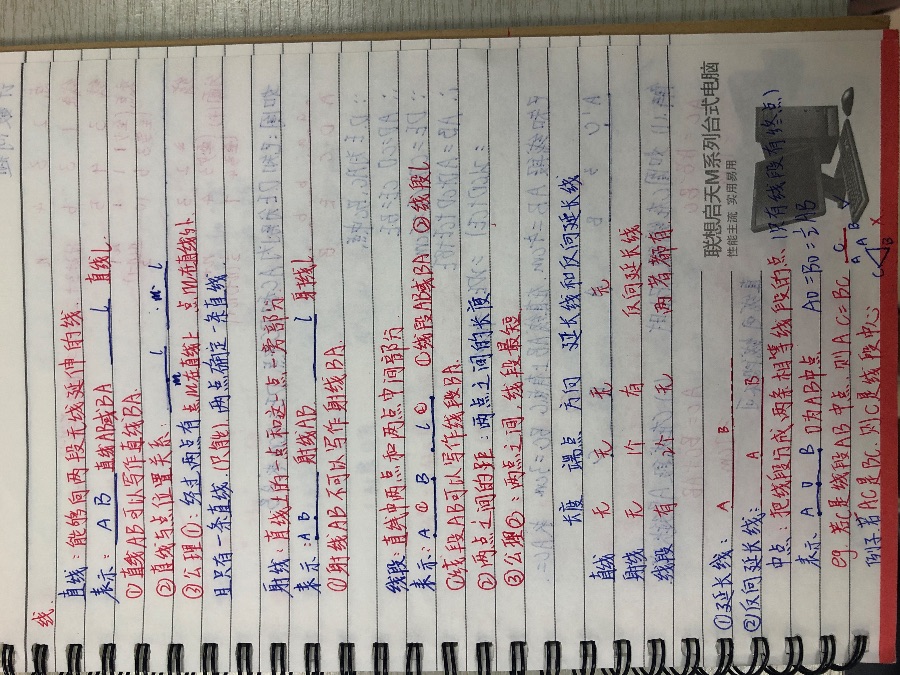 线.
直线:能够向两段无线延伸的线.
表示: A B 直线AB或BA l 直线l.
①直线AB可以写作直线BA.
②直线与点位置关系: m l m l
③公理①:经过两点有 点m在直线上 点m在直线外
且只有一条直线(只能),两点确定一条直线.
射线:直线上的一点和这一点一旁部分
表示: A B 射线AB l 射线l
①射线AB不可以写作射线BA.
线段:直线中两点和两点中间部分
表示: A ① B l ② ①线段AB或BA ②线段l
①线段AB可以写作线段BA.
②两点之间的距:两点之间的长度
③公理②:两点之间,线段最短.
长度 端点 方向 延长线和反向延长线
直线 无 无 无 无
射线 无 1个 有 反向延长线
线段 有 2个 无 两者都有
①延长线: A B
②反向延长线: A B
中点:把线段分成两条相等线段的点.(只有线段有终点)
表示 A O B O为AB中点 AO=BO=½AB
eg.若C是线段AB中点.则AC=BC A C B
例子若AC是BC.则C是线段中心 C A B ×
联想启天M系列台式电脑
性能主流 实用易用